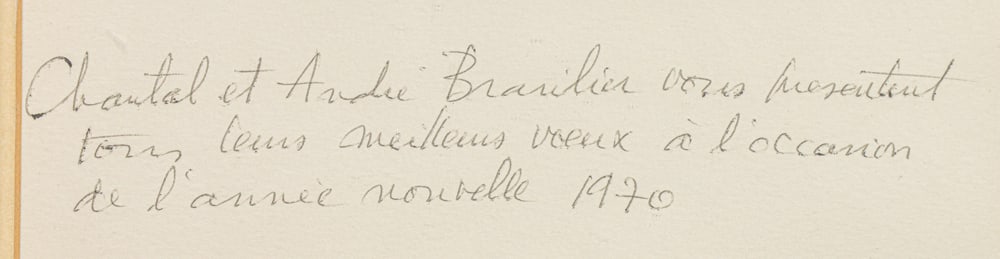 Chantal et André Brasilier vous presentent
tous leurs meilleurs vœux à l'occasion
de l'année nouvelle 1970